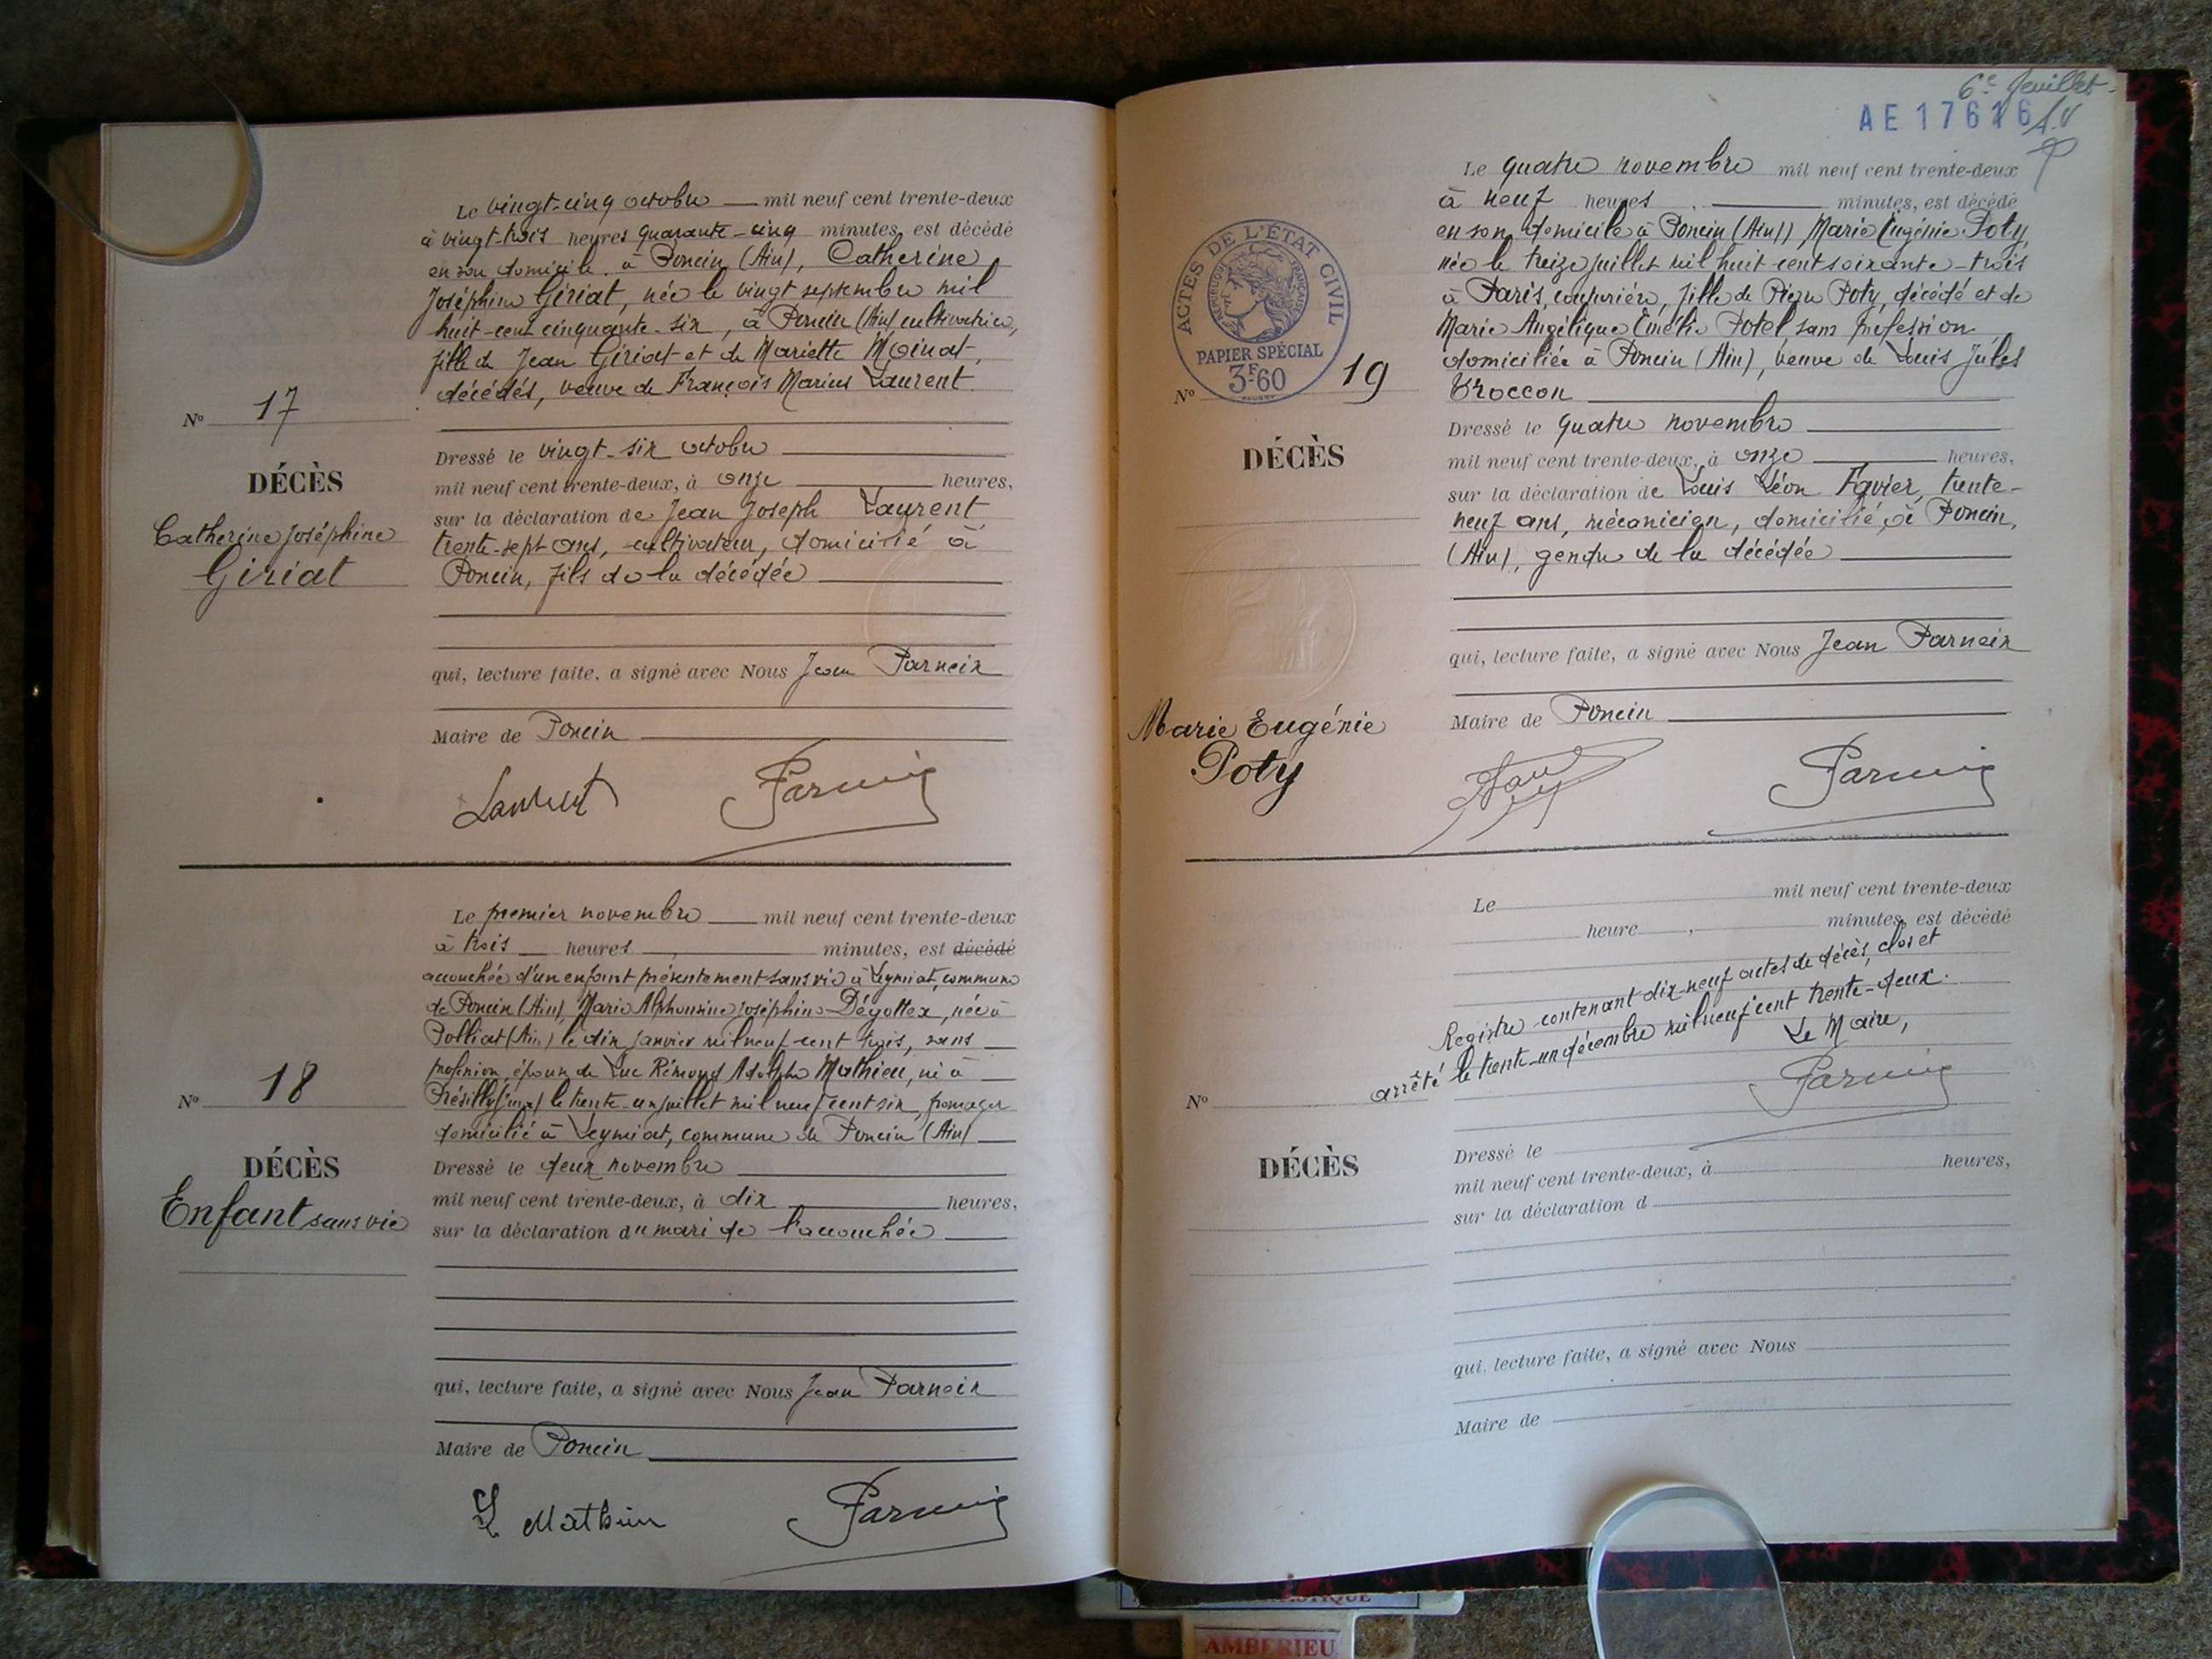 Le vingt-cinq octobre mil neuf cent trente-deux
à vingt-trois heures quarante-cinq minutes, est décédé
en son domicile à Poncin (Ain), Catherine
Joséphine Giriat, née le vingt septembre mil
huit-cent cinquante-six, à Poncin (Ain) cultivatrice,
fille de Jean Giriat et de Mariette Moinat,
décédés, veuve de François Marius Laurent
N° 17
DÉCÈS
Catherine Joséphine
Giriat
Dressé le vingt-six octobre
mil neuf cent trente-deux, à onze heures,
sur la déclaration de Jean Joseph Laurent
trente-sept ans, cultivateur, domicilié à
Poncin, fils de la décédée
qui, lecture faite, a signé avec Nous Jean Parneix
Maire de Poncin
Laurent Parneix
Le premier novembre mil neuf cent trente-deux
à trois heures, minutes, est décédé
accouchée d'un enfant présentement sans vie à Leymiat, commune
de Poncin (Ain), Marie Alphonsine Joséphine Dégottex, née à
Polliat (Ain) le dix janvier mil neuf cent trois, sans
profession, épouse de Luc Rémond Adolphe Mathieu, né à
Présilly (Jura) le trente-un juillet mil neuf cent six, fromager
domicilié à Leymiat, commune de Poncin (Ain)
N° 18
DÉCÈS
Enfant sans vie
Dressé le deux novembre
mil neuf cent trente-deux, à dix heures,
sur la déclaration du mari de l'accouchée
qui, lecture faite, a signé avec Nous Jean Parneix
Maire de Poncin
L Mathieu Parneix
6e feuillet
AE 17616
ACTES DE L'ÉTAT CIVIL
RÉPUBLIQUE FRANÇAISE
PAPIER SPÉCIAL
3F60
Le quatre novembre mil neuf cent trente-deux
à neuf heures, minutes, est décédé
en son domicile à Poncin (Ain) Marie Eugénie Poty,
née le treize juillet mil huit cent soixante-trois
à Paris, couturière, fille de Pierre Poty, décédé et de
Marie Angélique Potel sans profession
domiciliée à Poncin (Ain), veuve de Louis Jules
Troccon
N° 19
DÉCÈS
Marie Eugénie
Poty
Dressé le quatre novembre
mil neuf cent trente-deux, à onze heures,
sur la déclaration de Louis Léon Favier, trente-
neuf ans, mécanicien, domicilié à Poncin,
(Ain), gendre de la décédée
qui, lecture faite, a signé avec Nous Jean Parneix
Maire de Poncin
Parneix
Le mil neuf cent trente-deux
heure , minutes, est décédé
Registre contenant dix-neuf actes de décès, clos et
arrêté le trente-un décembre mil neuf cent trente-deux.
Le Maire,
Parneix
N°
DÉCÈS
Dressé le
mil neuf cent trente-deux, à heures,
sur la déclaration d
qui, lecture faite, a signé avec Nous
Maire de
AMBERIEU